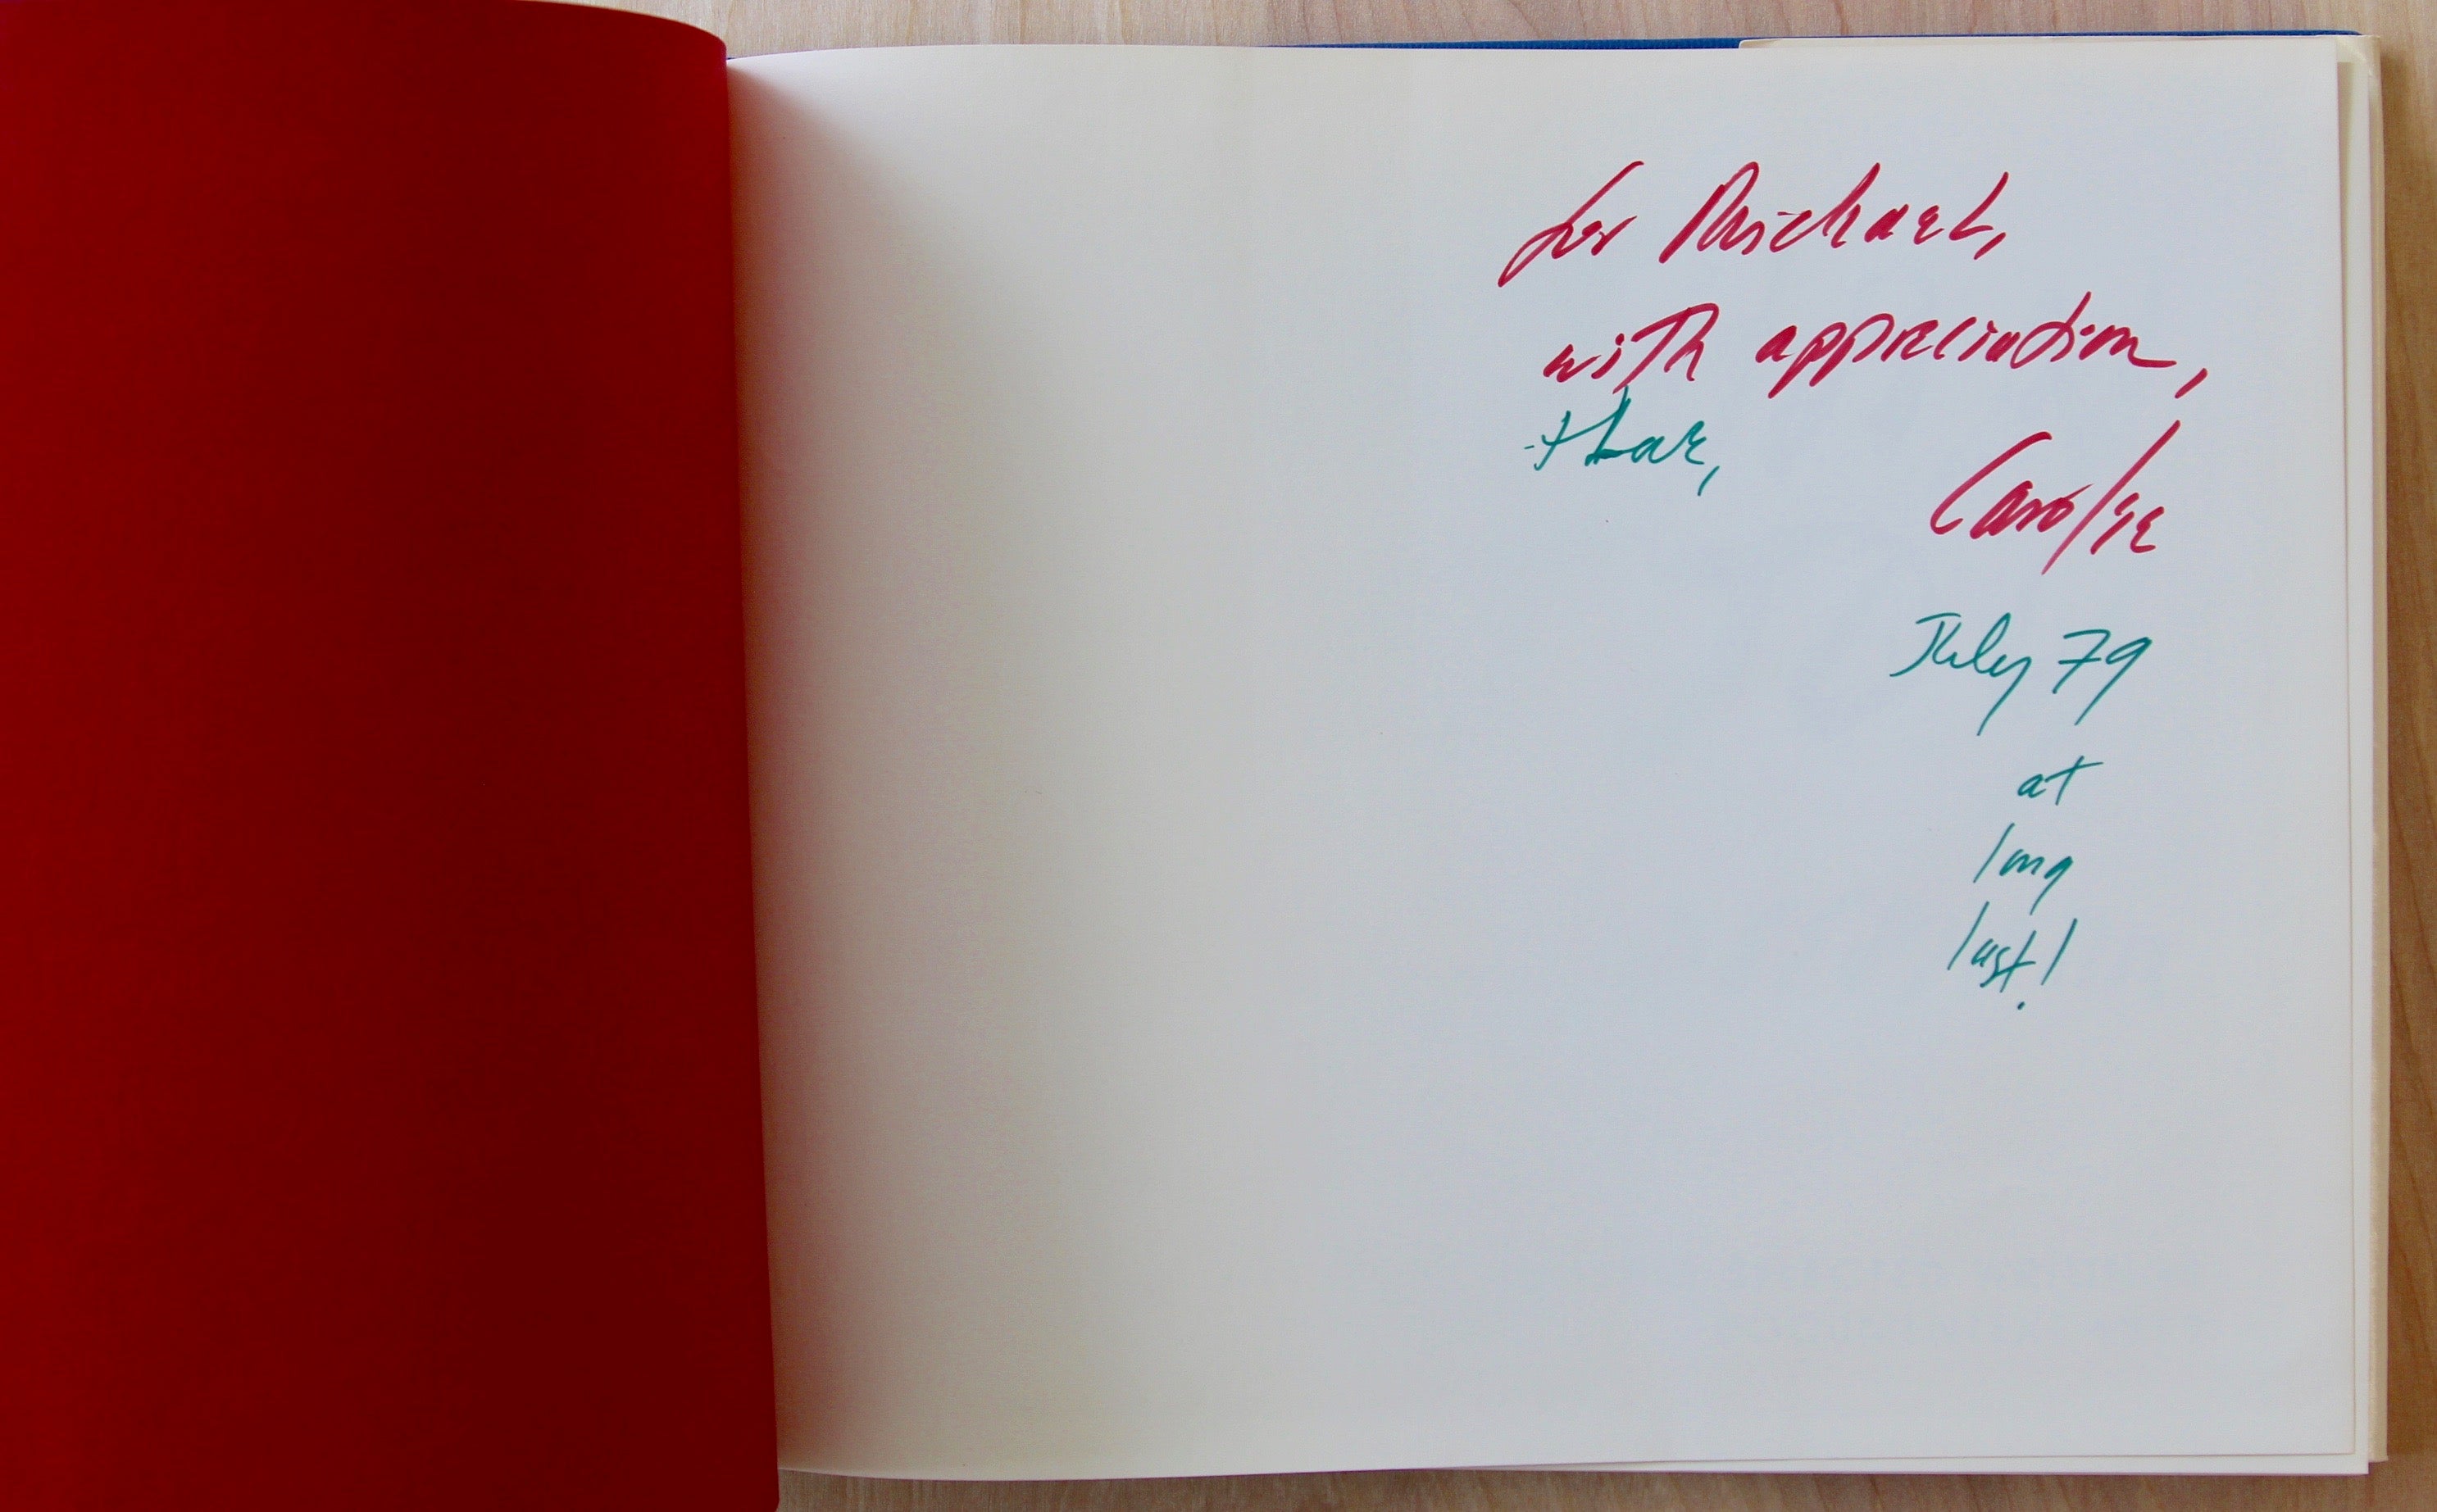 for Michael,
with appreciation,
+ love,
Carolee
July 79
at
long
last!